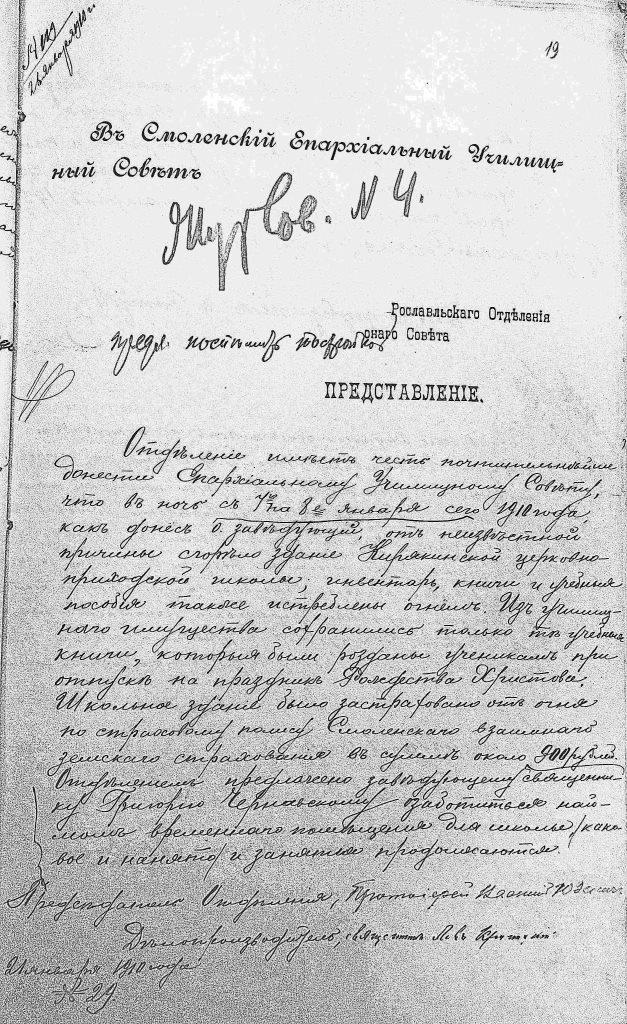 19
21 января 1910 г.
Въ Смоленскій Епархіальный Училищ-
ный Совѣтъ
Журов. № 4.
Рославльскаго Отдѣленія
онаго Совѣта
ПРЕДСТАВЛЕНІЕ.
Отдѣленіе имѣетъ честь почтительнѣйше
донести Епархіальному Училищному Совѣту,
что въ ночь съ 7го на 8е января сего 1910 года,
какъ донёсъ о. завѣдующій, отъ неизвѣстной
причины сгорѣло зданіе Кирякинской церковно-
приходской школы; инвентарь, книги и учебныя
пособія также истреблены огнёмъ. Изъ училищ-
наго имущества сохранились только тѣ учебныя
книги, которыя были розданы ученикамъ при
отпускѣ на праздникъ Рождества Христова.
Школьное зданіе было застраховано отъ огня
по страховому полису Смоленскаго взаимнаго
земскаго страхованія въ суммѣ около 900 рублей.
Отдѣленіемъ предложено завѣдующему священни-
ку Григорію Чернавскому озаботиться най-
момъ временнаго помѣщенія для школы /како-
вое и нанято/ и занятія продолжаются
Предсѣдатель Отдѣленія, Протоіерей
Дѣлопроизводитель, священ. Левъ
21 января 1910 года
№ 29.